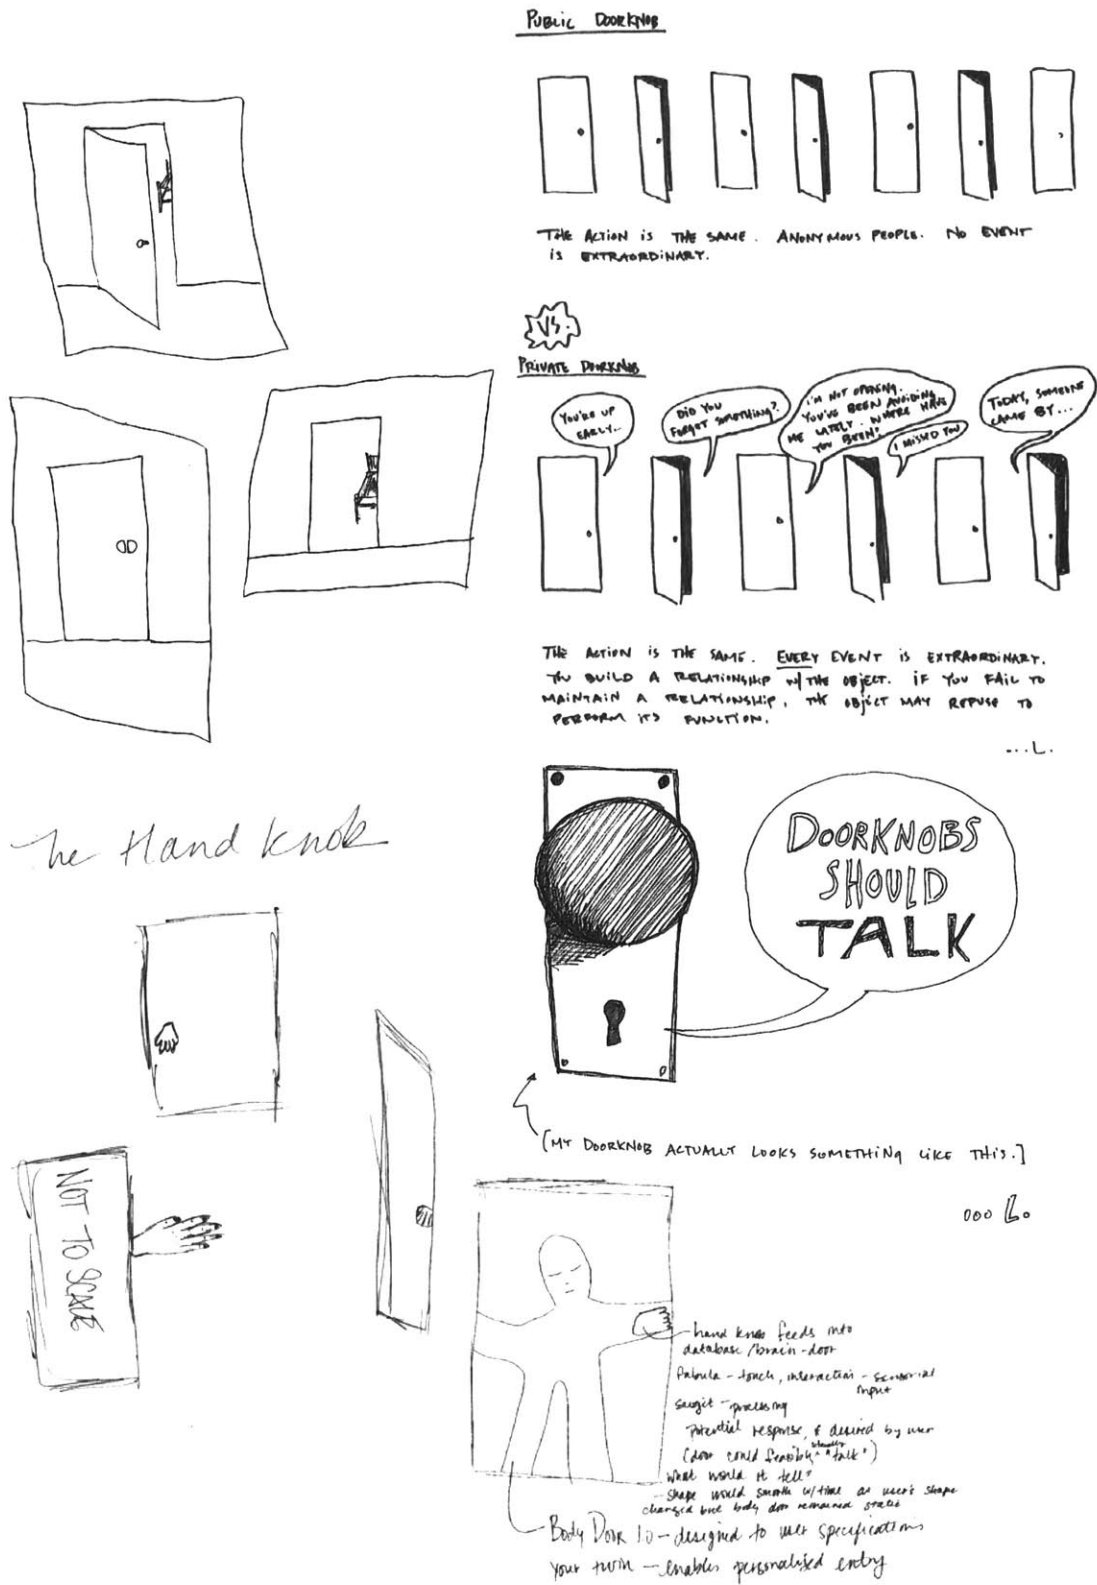 PUBLIC DOORKNOB
THE ACTION IS THE SAME. ANONYMOUS PEOPLE. NO EVENT
IS EXTRAORDINARY.
VS.
PRIVATE DOORKNOB
YOU'RE UP
EARLY..
DID YOU
FORGET SOMETHING?
I'M NOT OPENING.
YOU'VE BEEN AVOIDING
ME LATELY. WHERE HAVE
YOU BEEN!
I MISSED YOU
TODAY, SOMEONE
CAME BY...
THE ACTION IS THE SAME. EVERY EVENT IS EXTRAORDINARY.
YOU BUILD A RELATIONSHIP W/ THE OBJECT. IF YOU FAIL TO
MAINTAIN A RELATIONSHIP, THE OBJECT MAY REFUSE TO
PERFORM ITS FUNCTION.
...L.
The Hand Knob
DOORKNOBS
SHOULD
TALK
[MY DOORKNOB ACTUALLY LOOKS SOMETHING LIKE THIS.]
ooo L.
NOT TO SCALE
hand knob feeds into
database/brain-door
Pabula - touch, interaction - sensorial
input
- processing
Potential response, if desired by user
(door could feasibly literally "talk")
What would it tell?
- shape would smooth w/time as user's shape
changed but body door remained static
Body Door 1.0 - designed to user specifications
your twin - enables personalized entry